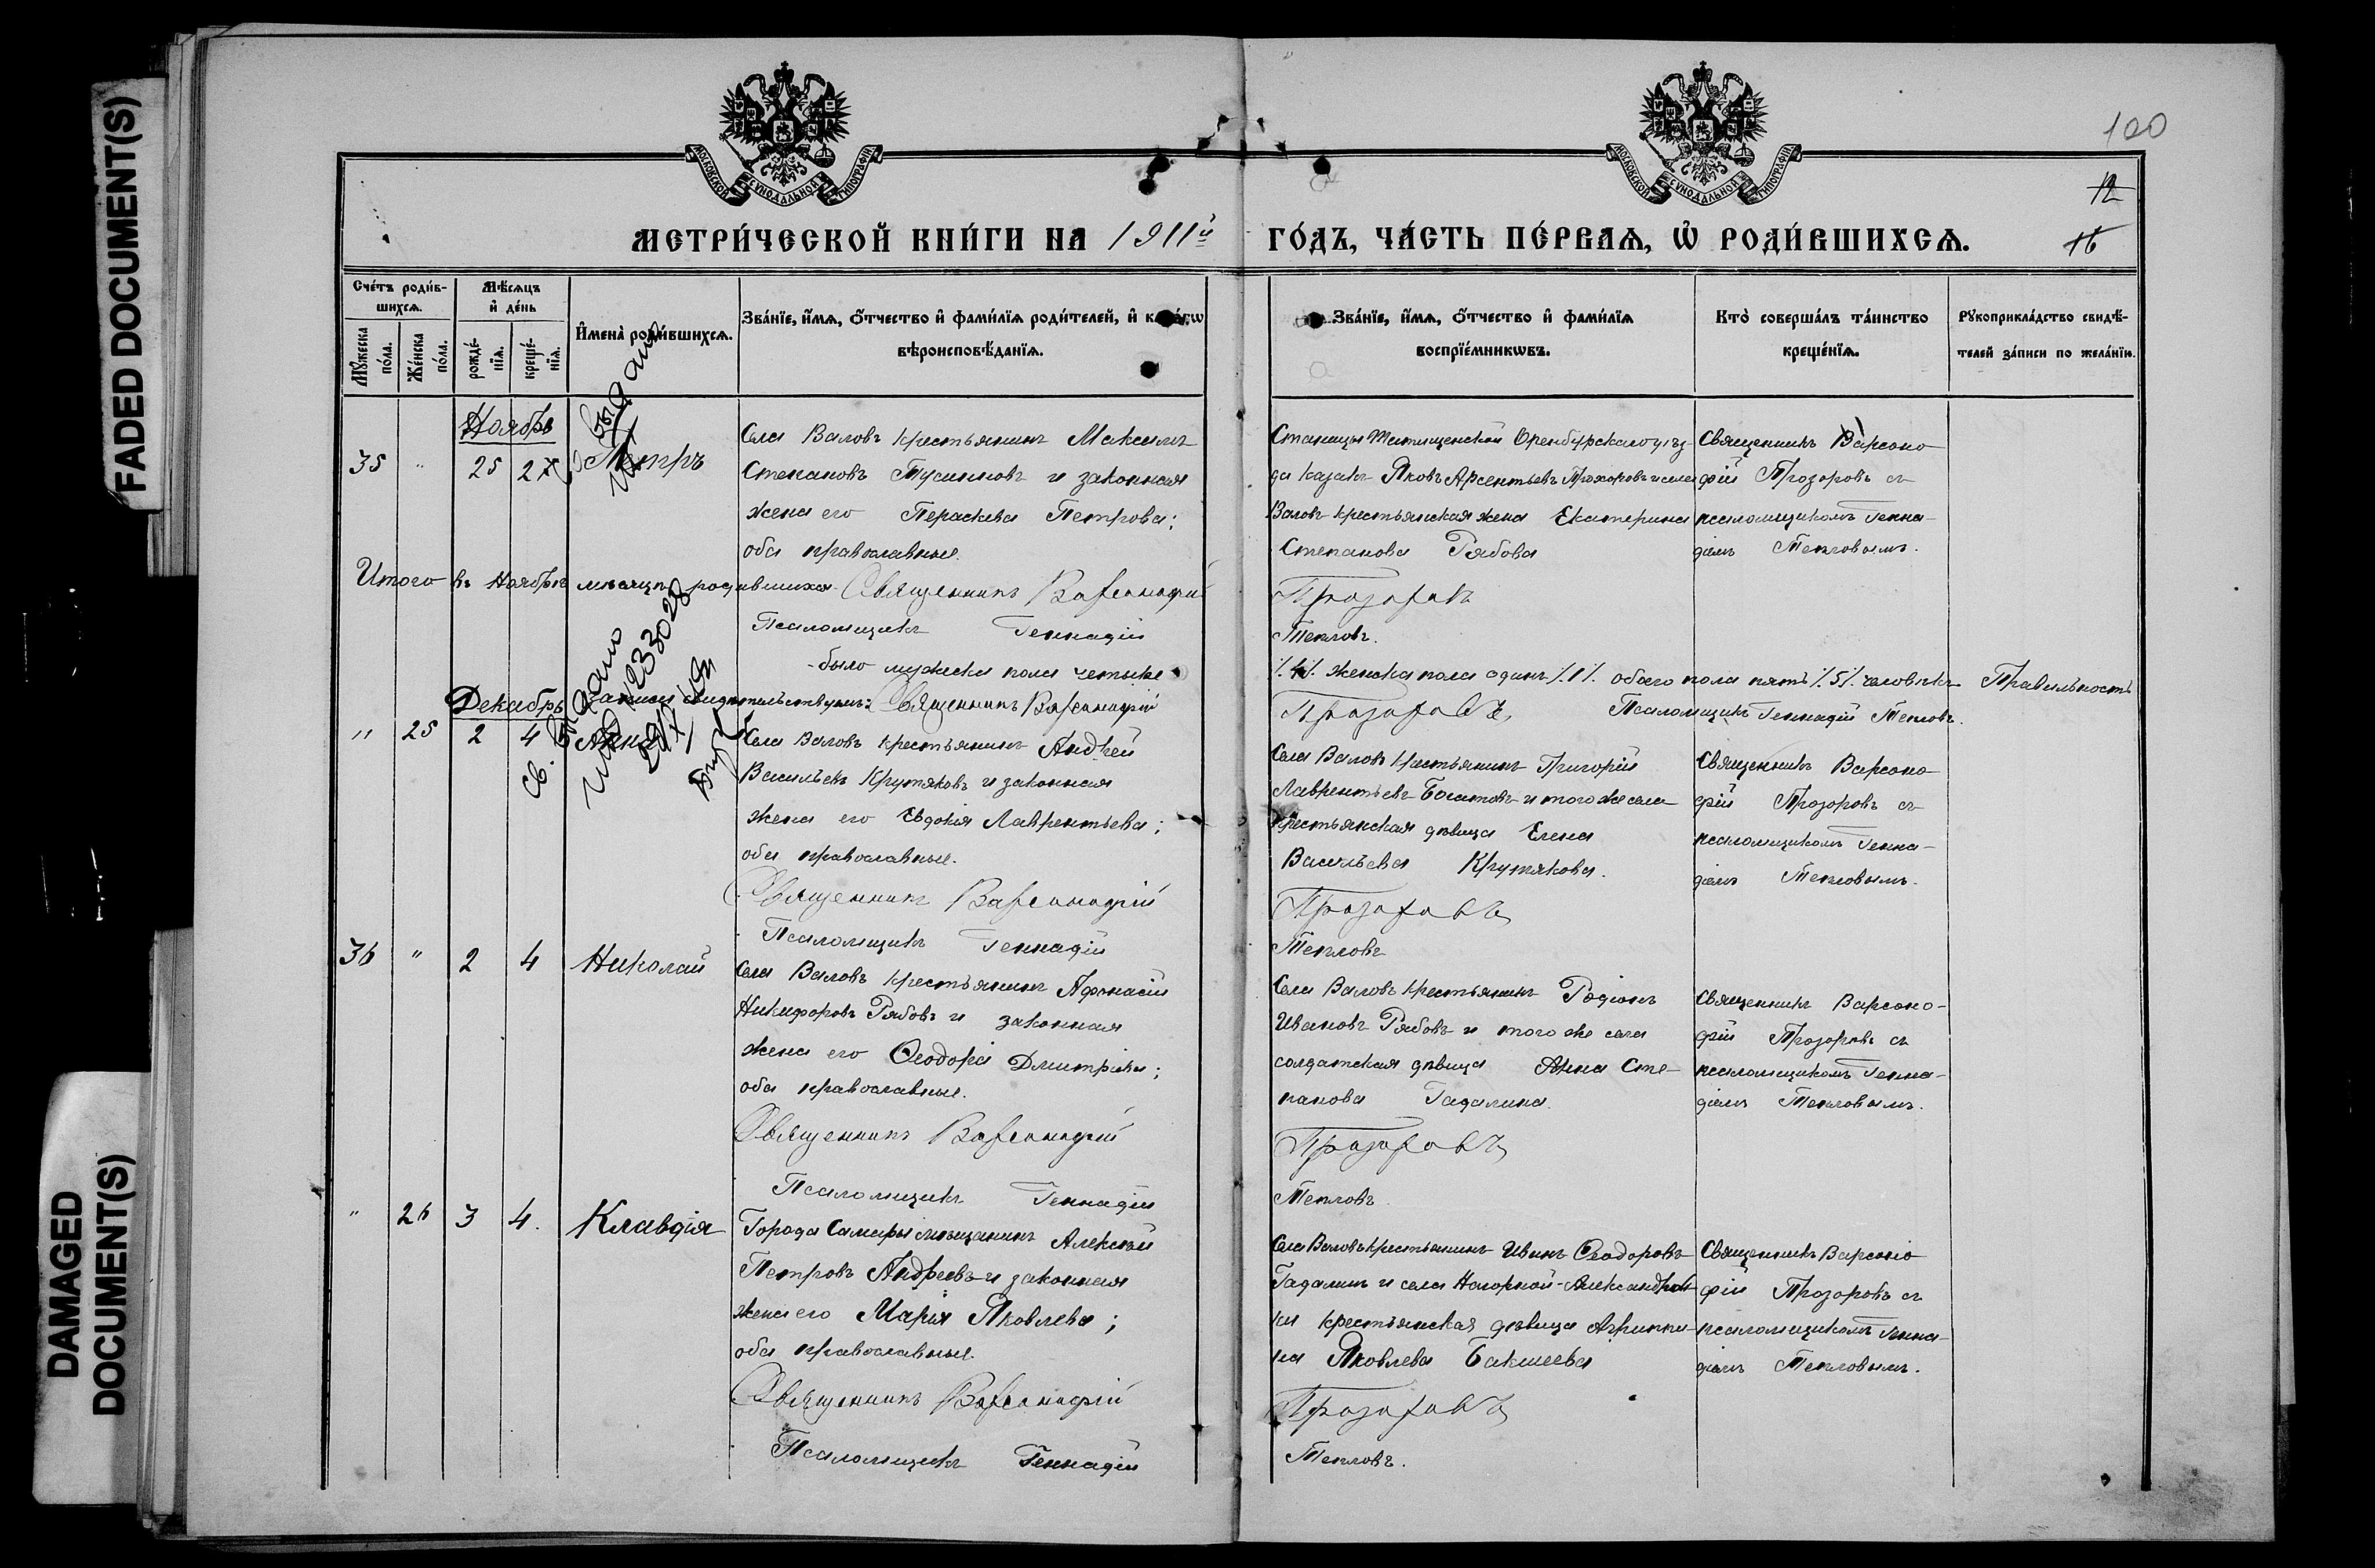 FADED DOCUMENT(S)
DAMAGED
DOCUMENT(S)
100
12
16
МОСКОВСКОЙ СѴНОДАЛЬНОЙ ТИПОГРАФІИ
МОСКОВСКОЙ СѴНОДАЛЬНОЙ ТИПОГРАФІИ
МЕТРИ́ЧЕСКОЙ КНИ́ГИ НА 1911й ГО́ДЪ, ЧА́СТЬ ПЕ́РВАѦ, Ѽ РОДИ́ВШИХСѦ.
Сче́тъ роди́в-
шихсѧ.
Мꙋ́жеска
по́ла.
Же́нска
по́ла.
Мѣ́сѧцъ
и҆ де́нь
рожде́-
нїѧ.
креще́-
нїѧ.
И҆мена̀ роди́вшихсѧ.
Зва́нїе, и҆́мѧ, ѻ҆́тчество и҆ фами́лїѧ роди́телей, и҆
вѣроисповѣ́данїѧ.
Зва́нїе, и҆́мѧ, ѻ҆́тчество и҆ фами́лїѧ
воспрїе́мникѡвъ.
Кто̀ соверша́лъ та́инство
креще́нїѧ.
Рꙋкоприкла́дство свидѣ́-
телей за́писи по жела́нїю.
Ноябрь
35 " 25 27 Петръ
Села Валовъ крестьянинъ Максимъ
Степановъ и законная
жена его Параскева Петрова;
оба православные.
Станицы Татищевской Оренбургскаго уѣз-
да казакъ Яковъ Арсентьевъ Прохоровъ и села
Валовъ крестьянская жена Екатерина
Степанова Рябова
Священникъ Варсоно
фій Прозоровъ съ
псаломщикомъ Генна-
діемъ Тепловымъ.
Итого въ Ноябрѣ мѣсяцѣ родившихся Священникъ Варсонофій
Прозоровъ
Псаломщикъ Геннадій
Тепловъ.
было мужеска пола четыре
/.4/. женска пола одинъ /.1/. обоего пола пять /.5/. человѣкъ Правильность
записи свидѣтельствуемъ: Священникъ Варсонофій
Прозоровъ, Псаломщикъ Геннадій Тепловъ.
Декабрь
" 25 2 4 Анна
Села Валовъ крестьянинъ Андрей
Васильевъ Крутяковъ и законная
жена его Евдокія Лаврентьева;
оба православные.
Села Валовъ крестьянинъ Григорій
Лаврентьевъ Богатовъ и того же села
крестьянская дѣвица Елена
Васильева Крутякова.
Священникъ Варсоно
фій Прозоровъ съ
псаломщикомъ Генна-
діемъ Тепловымъ.
Священникъ Варсонофій
Прозоровъ
Псаломщикъ Геннадій
Тепловъ
36 " 2 4 Николай
Села Валовъ крестьянинъ Афонасій
Никифоровъ Рябовъ и законная
жена его Ѳеодора Дмитріева;
оба православные.
Села Валовъ крестьянинъ Родіонъ
Ивановъ Рябовъ и того же села
солдатская дѣвица Анна Сте-
панова Гадалина.
Священникъ Варсоно-
фій Прозоровъ съ
псаломщикомъ Генна-
діемъ Тепловымъ.
Священникъ Варсонофій
Прозоровъ
Псаломщикъ Геннадій
Тепловъ
" 26 3 4. Клавдія
Города Самары мѣщанинъ Алексѣй
Петровъ Андреевъ и законная
жена его Марія Яковлева;
оба православные.
Села Валовъ крестьянинъ Иванъ Ѳеодоровъ
Гадалинъ и села Нагорной-Александров
ки крестьянская дѣвица Агриппи-
на Яковлева Бакшеева
Священникъ Варсоно
фій Прозоровъ съ
псаломщикомъ Генна-
діемъ Тепловымъ.
Священникъ Варсонофій
Прозоровъ
Псаломщикъ Геннадій
Тепловъ.